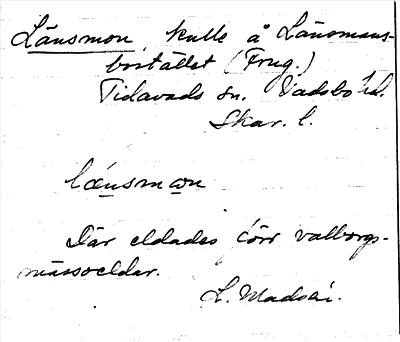 Länsmon, kulle å Länsmans-
bostället (Frug.)
Tidavads sn. Vadsbo hd.
Skar. l.
lænsmωn
Där eldades förr valborgs-
mässoeldar.
L. Madsén.